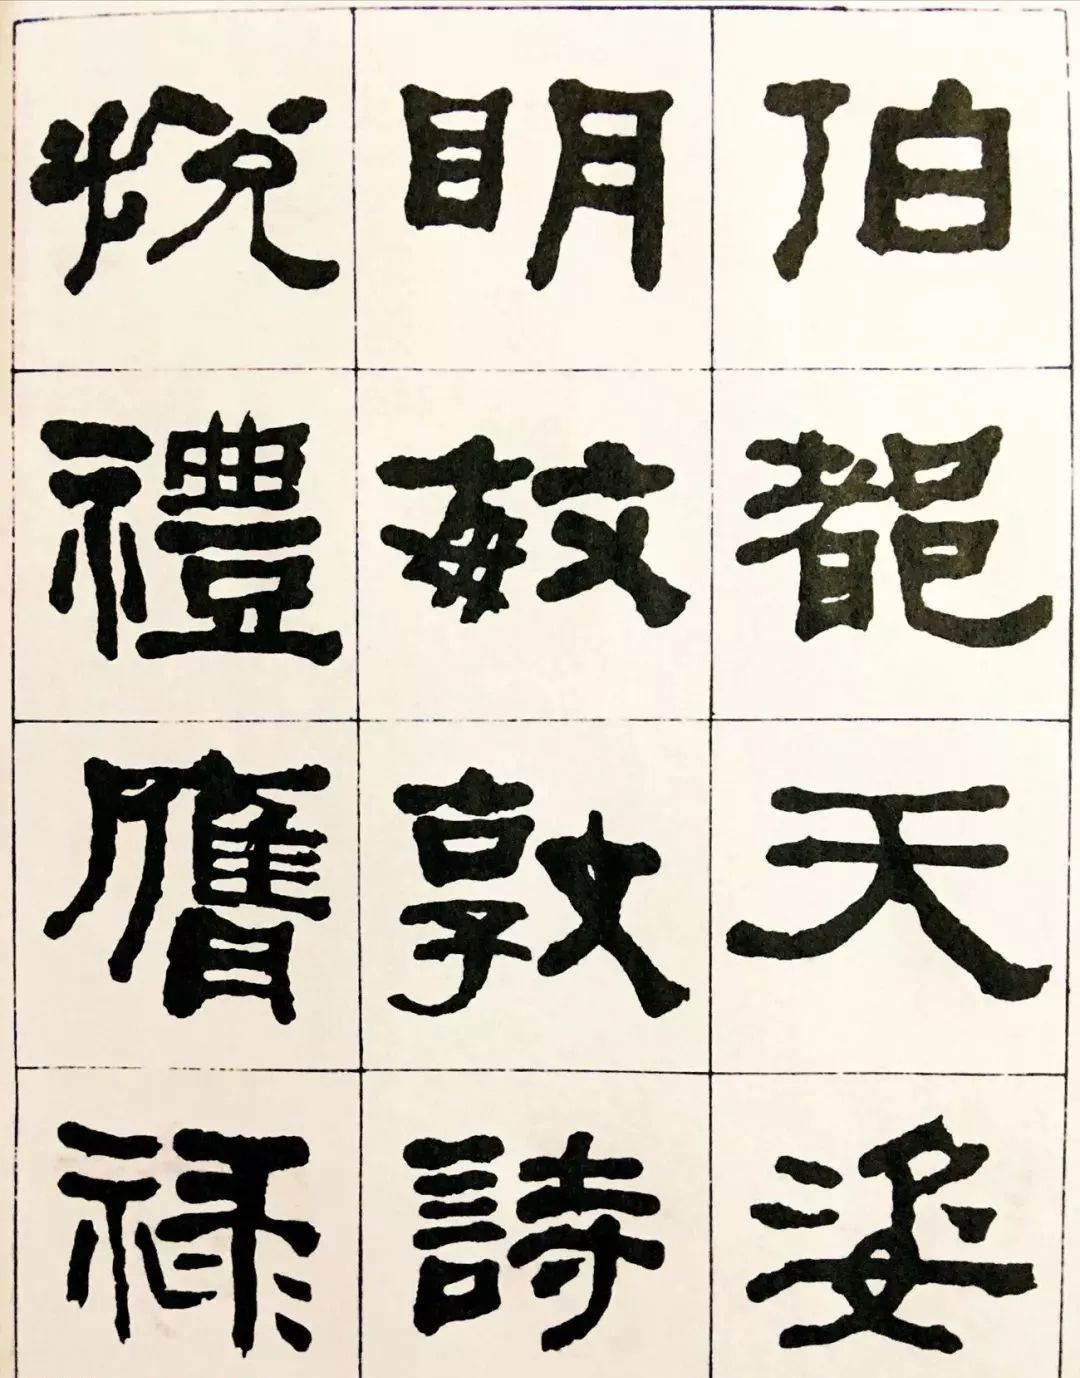 伯都天姿
明敏敦詩
悦禮膺禄